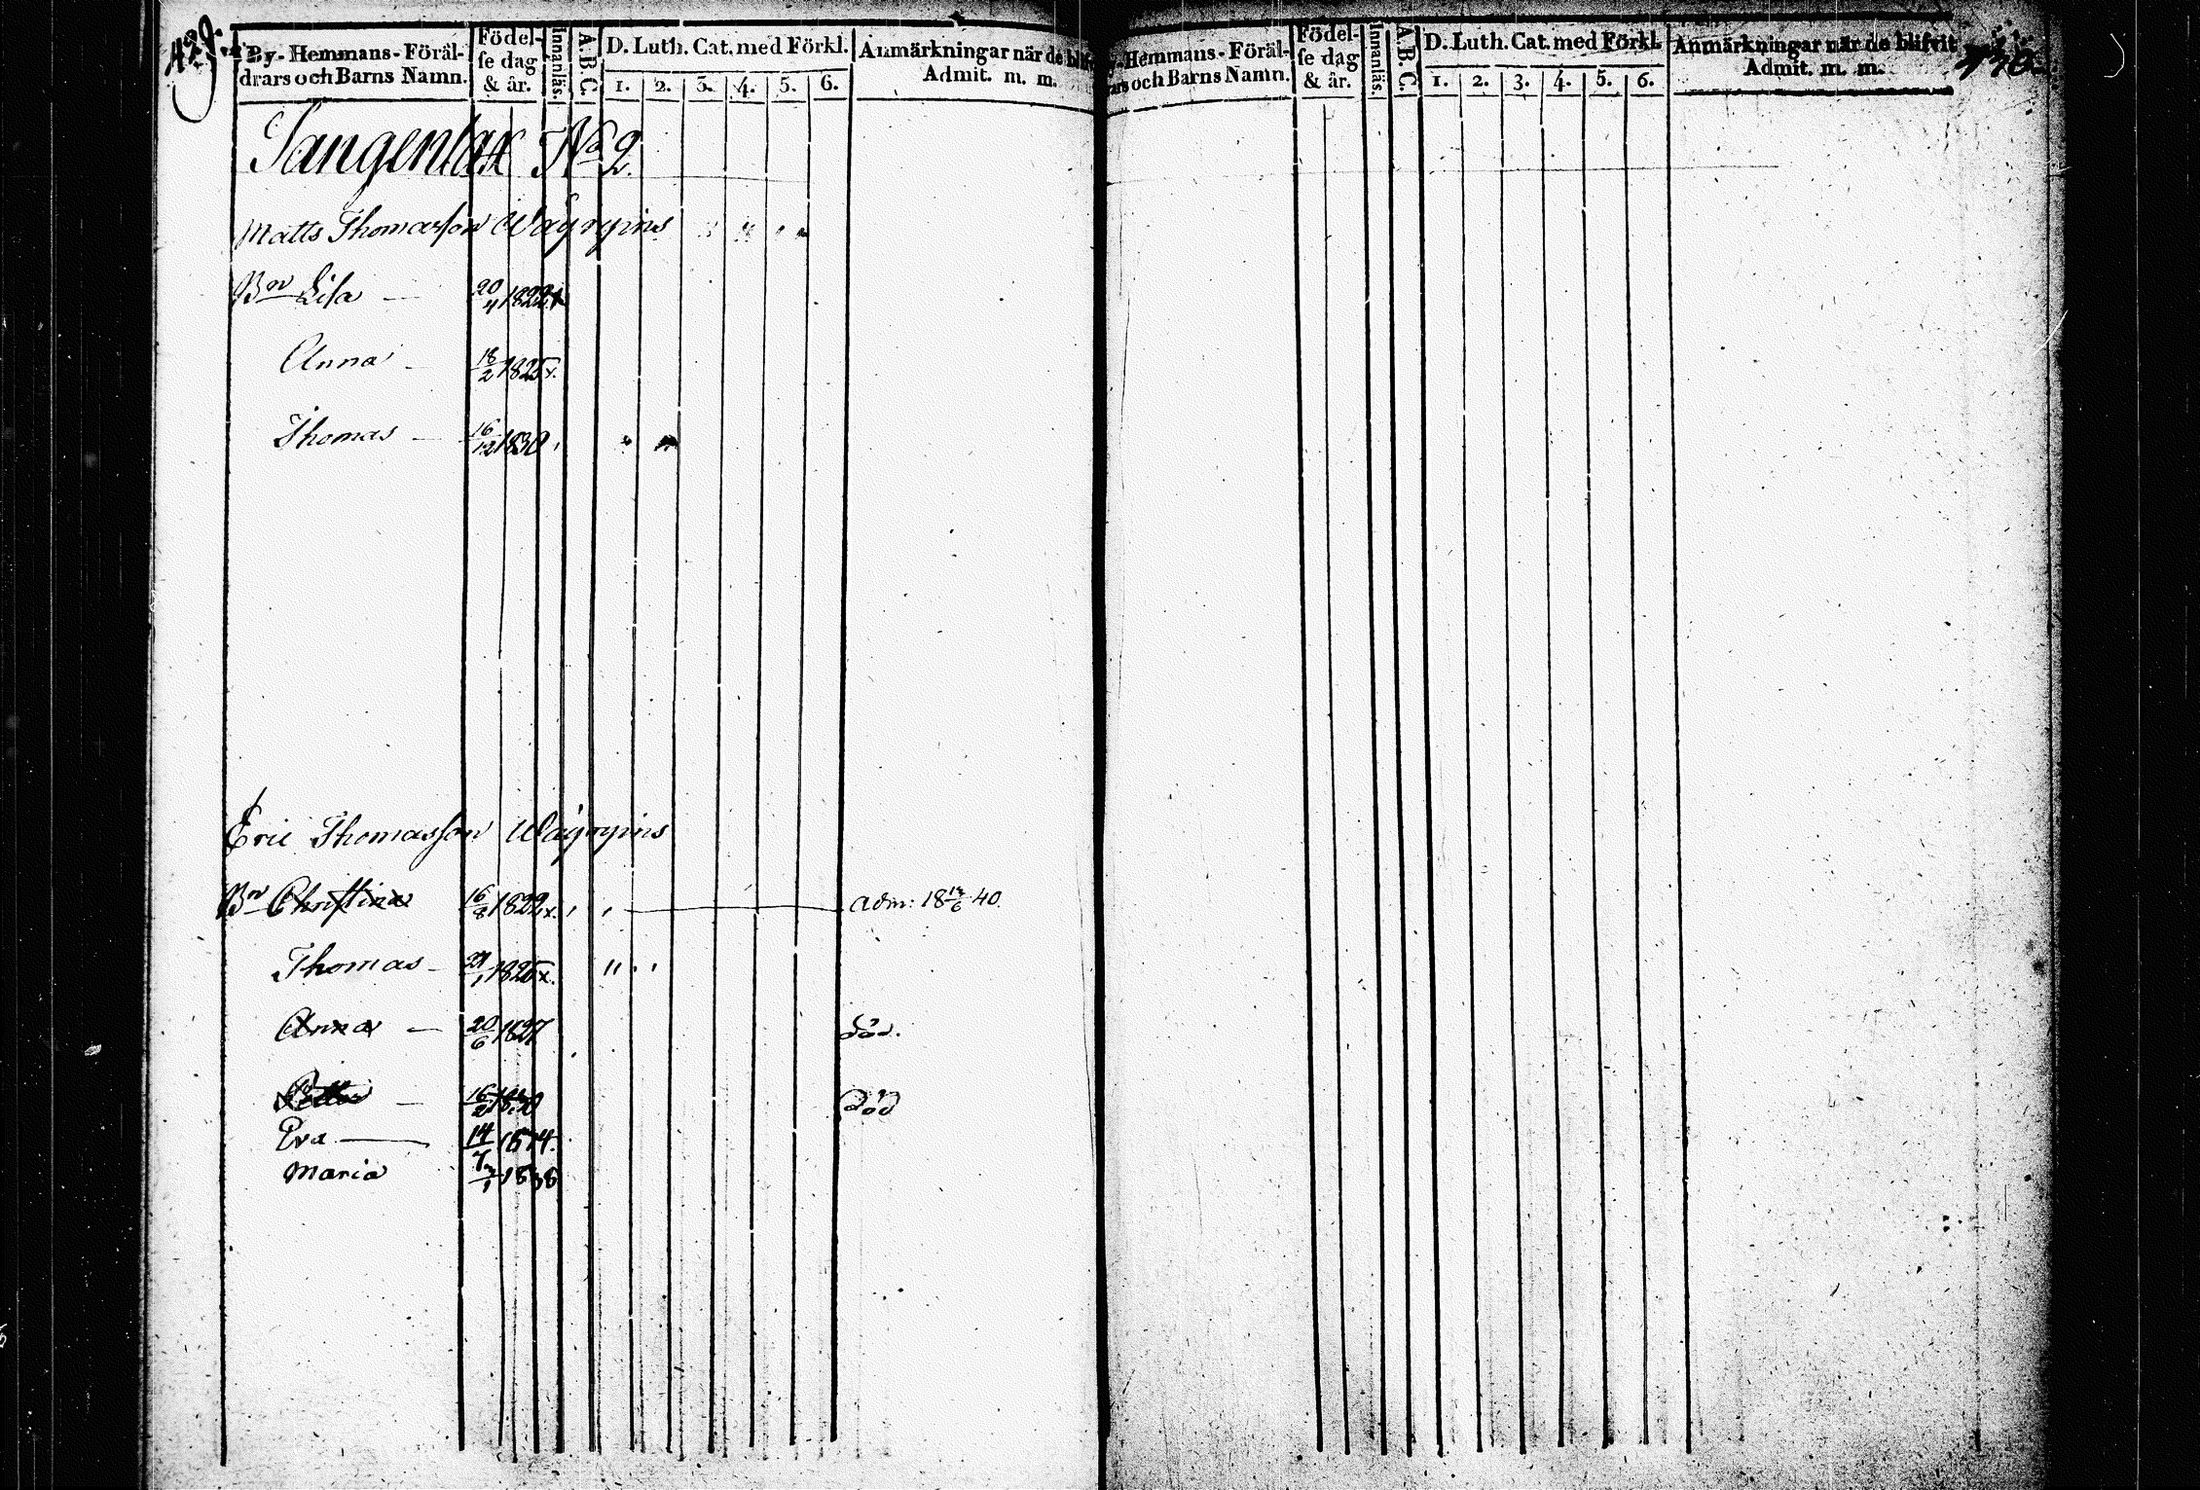 429.
By- Hemmans- Föräl-
drars och Barns Namn.
Födel-
se dag
& år.
Innanläs.
A.B.C.
D. Luth. Cat. med Förkl.
1. 2. 3. 4. 5. 6.
Anmärkningar när de blif
Admit. m. m.
No 2.
Matts Thomasson
Bn Lisa — 20/4 1822 x
Anna — 18/2 1825 x.
Thomas — 16/12 1830
Eric Thomasson
Bn Christina 16/8 1822 x. Adm: 18 14/6 40.
Thomas — 1825 x.
Anna — 20/6 1827 död.
Petter — 16/2 1830 död
Eva — 14/7
Maria 1838
y- Hemmans- Föräl-
rars och Barns Namn.
Födel-
se dag
& år.
Innanläs.
A.B.C.
D. Luth. Cat. med Förkl.
1. 2. 3. 4. 5. 6.
Anmärkningar när de blifvit
Admit. m. m.
430.